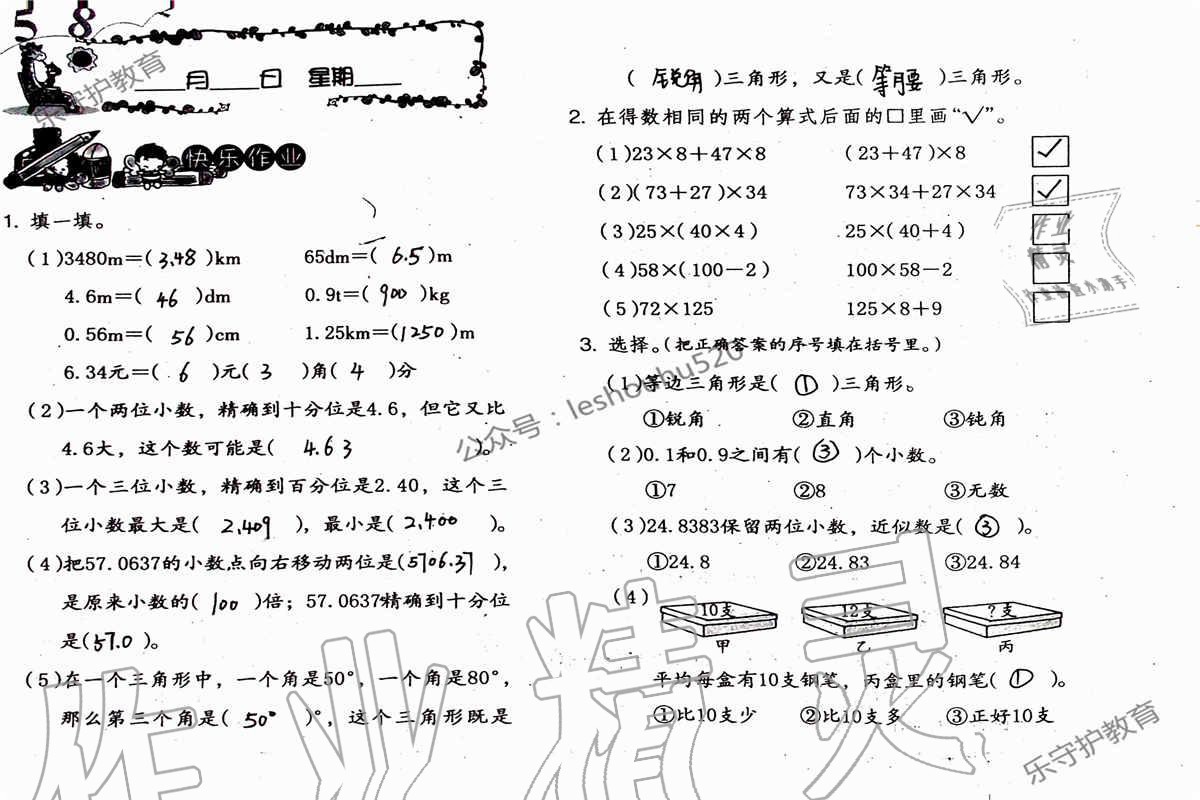 58
___月___日 星期___
快乐作业
1. 填一填。
(1)3480m=(3.48)km 65dm=(6.5)m
4.6m=(46)dm 0.9t=(900)kg
0.56m=(56)cm 1.25km=(1250)m
6.34元=(6)元(3)角(4)分
(2)一个两位小数，精确到十分位是4.6，但它又比
4.6大，这个数可能是(4.63)。
(3)一个三位小数，精确到百分位是2.40，这个三
位小数最大是(2.409)，最小是(2.400)。
(4)把57.0637的小数点向右移动两位是(5706.37)，
是原来小数的(100)倍；57.0637精确到十分位
是(57.0)。
(5)在一个三角形中，一个角是50°，一个角是80°，
那么第三个角是(50°)°，这个三角形既是
(锐角)三角形，又是(等腰)三角形。
2. 在得数相同的两个算式后面的□里画“√”。
(1)23×8+47×8 (23+47)×8 ✓
(2)(73+27)×34 73×34+27×34 ✓
(3)25×(40×4) 25×(40+4)
(4)58×(100-2) 100×58-2
(5)72×125 125×8+9
3. 选择。(把正确答案的序号填在括号里。)
(1)等边三角形是(①)三角形。
①锐角 ②直角 ③钝角
(2)0.1和0.9之间有(③)个小数。
①7 ②8 ③无数
(3)24.8383保留两位小数，近似数是(③)。
①24.8 ②24.83 ③24.84
(4)
10支 12支 ?支
甲 乙 丙
平均每盒有10支钢笔，丙盒里的钢笔(①)。
①比10支少 ②比10支多 ③正好10支
乐守护教育
公众号：leshouhu520
作业精灵
作业
精灵
作业检查小助手
乐守护教育